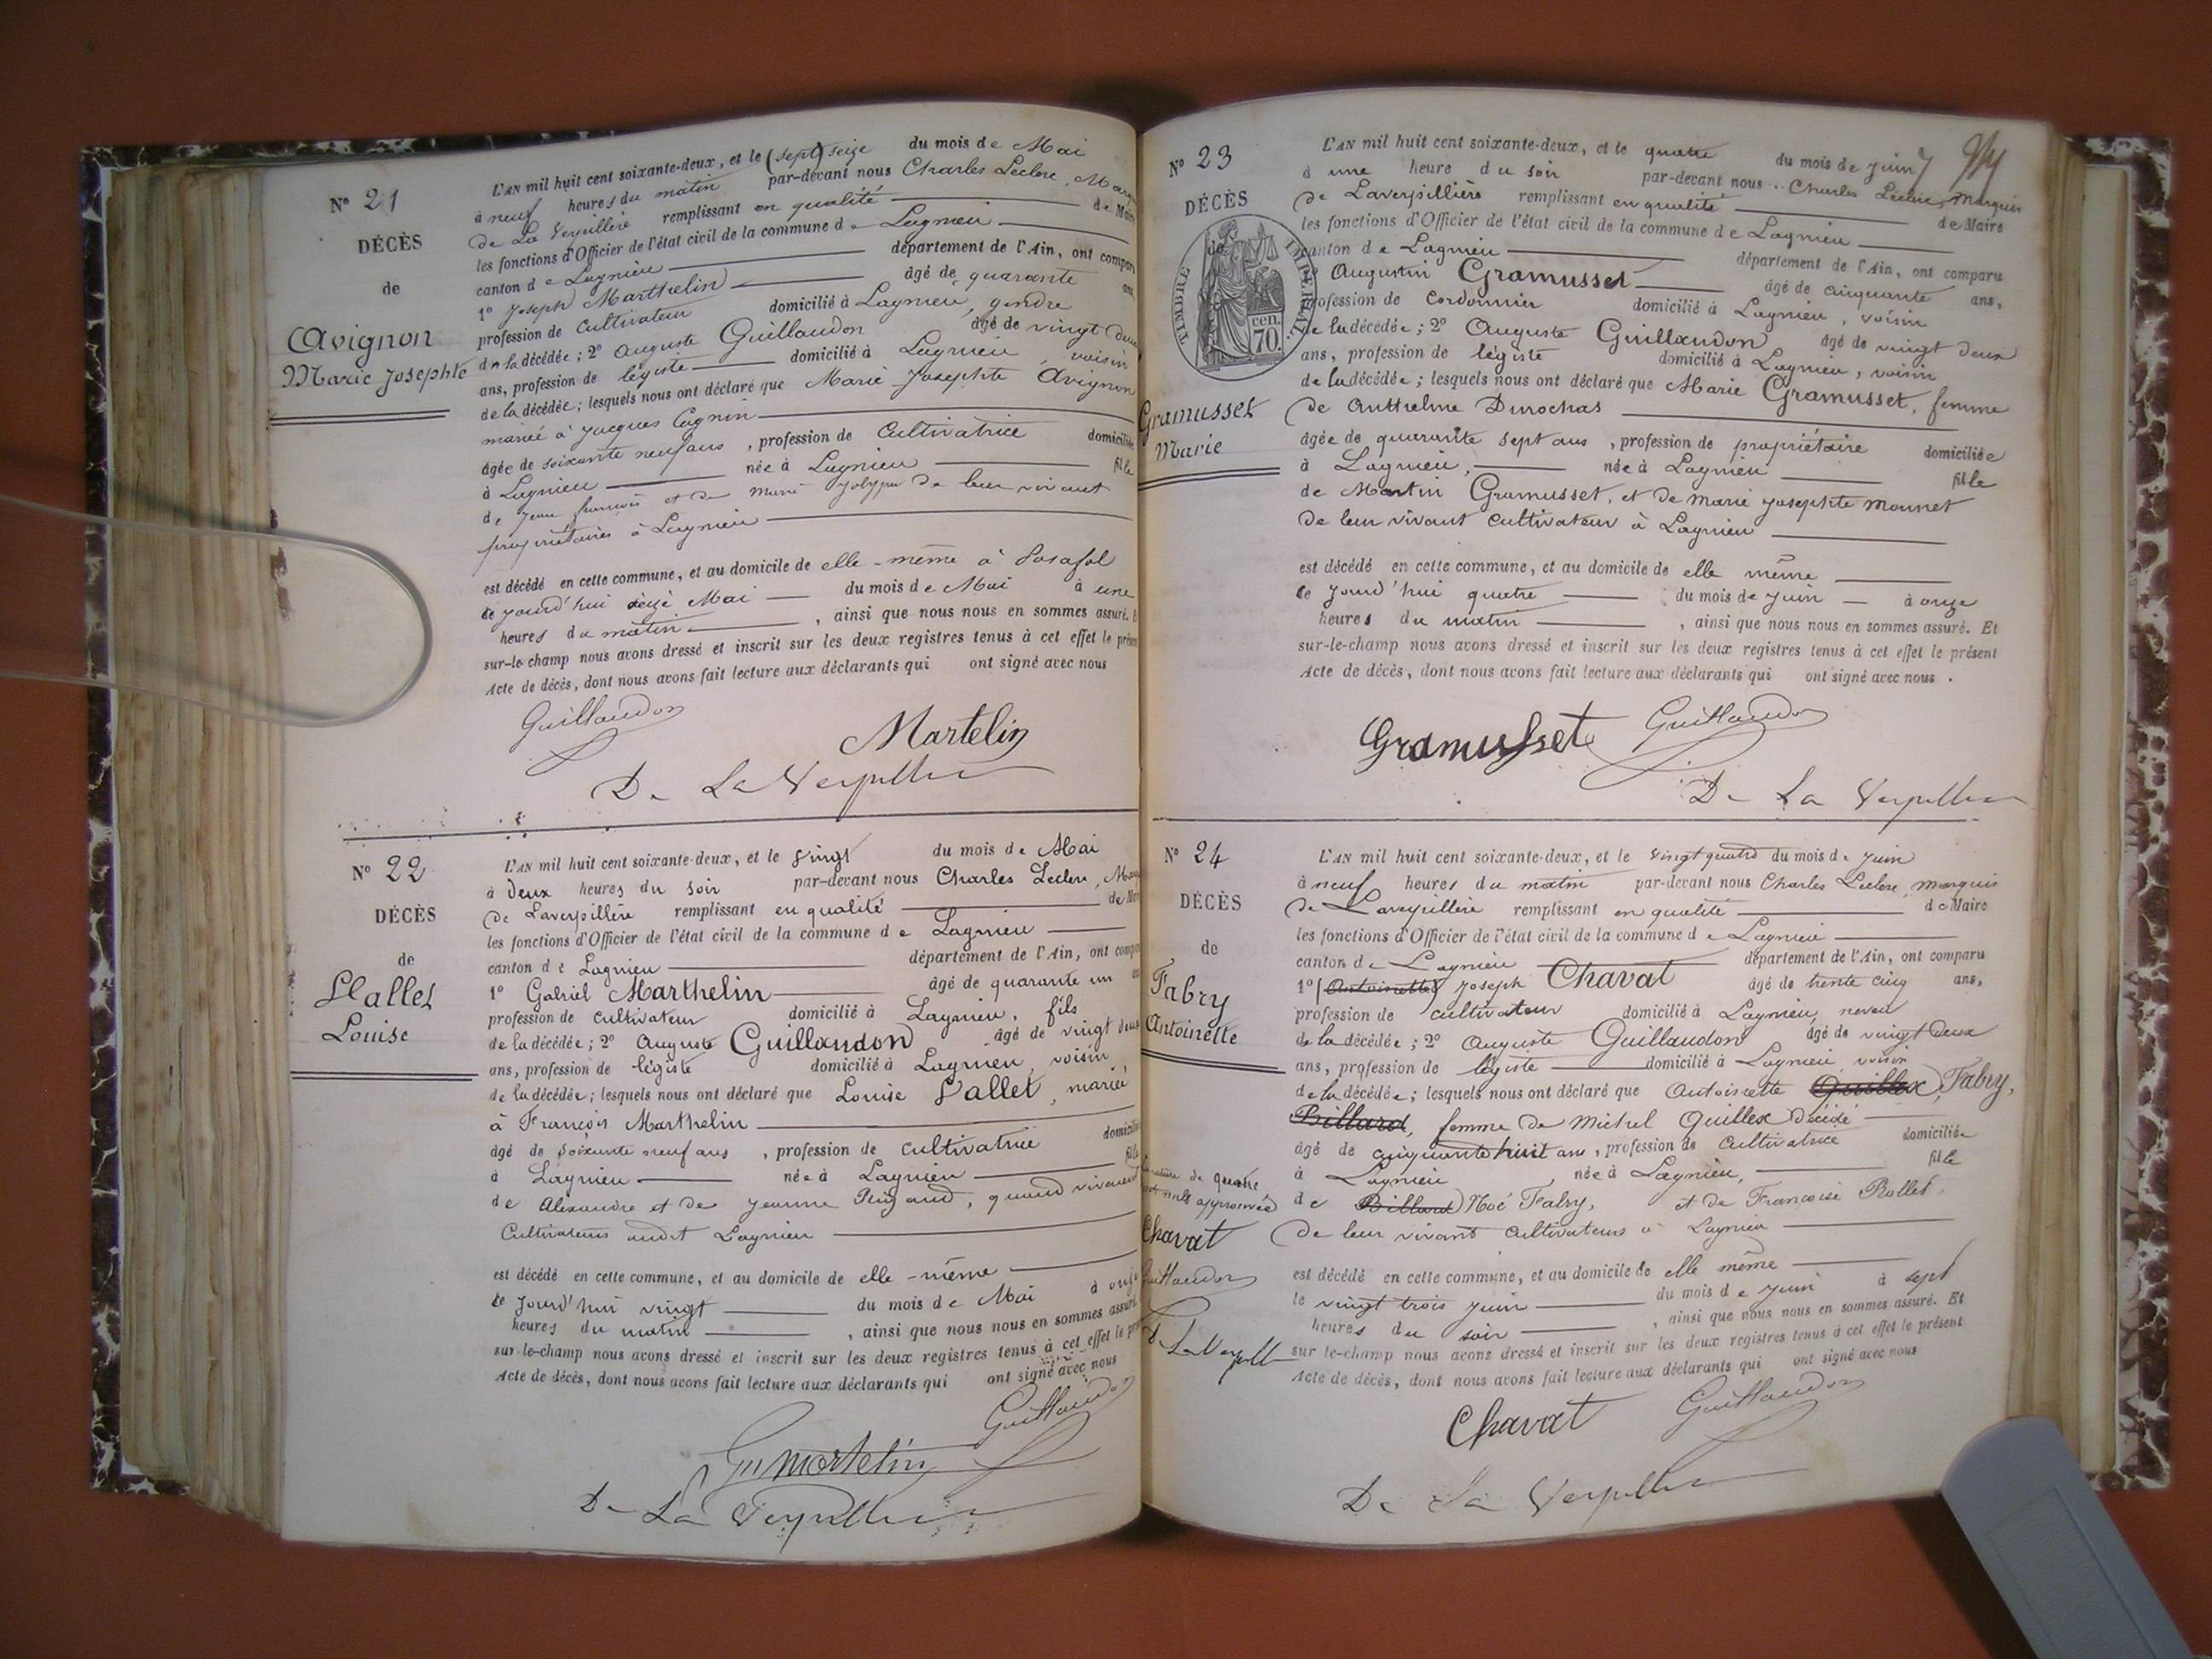 N° 21
DÉCÈS
de
Avignon
Marie Josephte
L'AN mil huit cent soixante-deux, et le (sept) seize du mois de Mai
à neuf heures du matin par-devant nous Charles Leclerc,
de La Verpillière remplissant en qualité de Maire
les fonctions d'Officier de l'état civil de la commune de Lagnieu
canton de Lagnieu département de l'Ain, ont comparu
1° Joseph Marthelin âgé de quarante ans,
profession de Cultivateur domicilié à Lagnieu, gendre
de la décédée; 2° Auguste Guillaudon âgé de vingt deux
ans, profession de légiste domicilié à Lagnieu, voisin
de la décédée; lesquels nous ont déclaré que Marie Josephte Avignon
mariée à Jacques Cognin
âgée de soixante neuf ans, profession de Cultivatrice domiciliée
à Lagnieu née à Lagnieu fille
de Jean françois et de Marie de leur vivant
propriétaires à Lagnieu
est décédé en cette commune, et au domicile de elle-même à Posafol
ce jourd'hui seize Mai du mois de Mai à une
heures du matin, ainsi que nous nous en sommes assuré. Et
sur-le-champ nous avons dressé et inscrit sur les deux registres tenus à cet effet le présent
Acte de décès, dont nous avons fait lecture aux déclarants qui ont signé avec nous
Guillaudon
Martelin
De La Verpillière
N° 22
DÉCÈS
de
Vallet
Louise
L'AN mil huit cent soixante-deux, et le vingt du mois de Mai
à deux heures du soir par-devant nous Charles Leclerc,
de Laverpillière remplissant en qualité de Maire
les fonctions d'Officier de l'état civil de la commune de Lagnieu
canton de Lagnieu département de l'Ain, ont comparu
1° Gabriel Marthelin âgé de quarante un
profession de cultivateur domicilié à Lagnieu, fils
de la décédée; 2° Auguste Guillaudon âgé de vingt deux
ans, profession de légiste domicilié à Lagnieu, voisin
de la décédée; lesquels nous ont déclaré que Louise Vallet, mariée
à François Marthelin
âgé de soixante neuf ans, profession de cultivatrice domiciliée
à Lagnieu née à Lagnieu fille
de Alexandre et de Jeanne Pingaud, quand vivaient
Cultivateurs audit Lagnieu
est décédé en cette commune, et au domicile de elle-même
ce jourd'hui vingt du mois de Mai à onze
heures du matin, ainsi que nous nous en sommes assuré
sur-le-champ nous avons dressé et inscrit sur les deux registres tenus à cet effet le présent
Acte de décès, dont nous avons fait lecture aux déclarants qui ont signé avec nous
Guillaudon
Martelin
De La Verpillière
N° 23
DÉCÈS
de
TIMBRE IMPERIAL
70 cen.
Gramusset
Marie
L'AN mil huit cent soixante-deux, et le quatre du mois de Juin
à une heure du soir par-devant nous Charles Leclerc, Marquis
de Laverpillière remplissant en qualité de Maire
les fonctions d'Officier de l'état civil de la commune de Lagnieu
canton de Lagnieu département de l'Ain, ont comparu
1° Augustin Gramusset âgé de cinquante ans,
profession de Cordonnier domicilié à Lagnieu, voisin
de la décédée; 2° Auguste Guillaudon âgé de vingt deux
ans, profession de légiste domicilié à Lagnieu, voisin
de la décédée; lesquels nous ont déclaré que Marie Gramusset, femme
de Anthelme Durochas
âgée de quarante sept ans, profession de propriétaire domiciliée
à Lagnieu, née à Lagnieu fille
de Martin Gramusset, et de Marie Josephte Monnet
de leur vivant cultivateur à Lagnieu
est décédé en cette commune, et au domicile de elle même
ce jourd'hui quatre du mois de Juin à onze
heures du matin, ainsi que nous nous en sommes assuré. Et
sur-le-champ nous avons dressé et inscrit sur les deux registres tenus à cet effet le présent
Acte de décès, dont nous avons fait lecture aux déclarants qui ont signé avec nous.
Gramusset Guillaudon
De La Verpillière
N° 24
DÉCÈS
de
Fabry
Antoinette
L'AN mil huit cent soixante-deux, et le vingt quatre du mois de Juin
à neuf heures du matin par-devant nous Charles Leclerc, marquis
de Laverpillière remplissant en qualité de Maire
les fonctions d'Officier de l'état civil de la commune de Lagnieu
canton de Lagnieu département de l'Ain, ont comparu
1° (Antoinette) Joseph Chavat âgé de trente cinq ans,
profession de cultivateur domicilié à Lagnieu, neveu
de la décédée; 2° Auguste Guillaudon âgé de vingt deux
ans, profession de légiste domicilié à Lagnieu, voisin
de la décédée; lesquels nous ont déclaré que Antoinette Quillex, Fabry,
Billard, femme de Michel Quillex décédé
âgé de cinquante huit ans, profession de Cultivatrice domiciliée
à Lagnieu née à Lagnieu, fille
de Billard Noé Fabry, et de Françoise Rollet,
de leur vivant cultivateurs à Lagnieu
de quatre
mots nuls approuvée
Chavat
Guillaudon
De La Verpillière
est décédé en cette commune, et au domicile de elle même
le vingt trois juin du mois de Juin à sept
heures du soir, ainsi que nous nous en sommes assuré. Et
sur le-champ nous avons dressé et inscrit sur les deux registres tenus à cet effet le présent
Acte de décès, dont nous avons fait lecture aux déclarants qui ont signé avec nous
Chavat Guillaudon
De La Verpillière